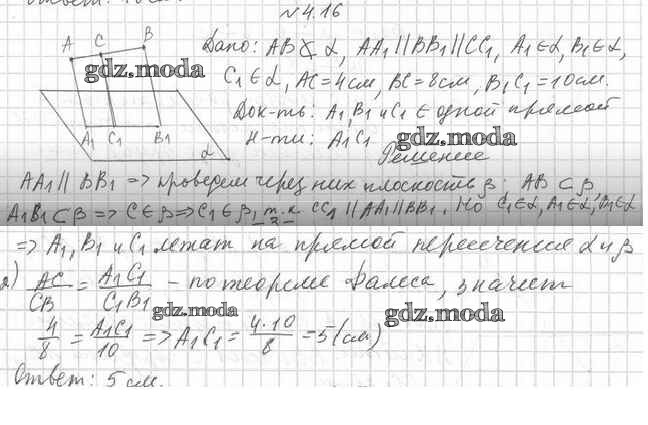 №4.16
Дано: AB ⊄ α, AA₁ ∥ BB₁ ∥ CC₁, A₁ ∈ α, B₁ ∈ α,
C₁ ∈ α, AC = 4см, BC = 8см, B₁C₁ = 10см.
Док-ть: A₁, B₁ и C₁ ∈ одной прямой
Н-ти: A₁C₁
Решение
A C B
A₁ C₁ B₁ α
gdz.moda
gdz.moda
AA₁ ∥ BB₁ => проведем через них плоскость β: AB ⊂ β
A₁B₁ ⊂ β => C ∈ β => C₁ ∈ β, т.к. CC₁ ∥ AA₁ ∥ BB₁. Но C₁ ∈ α, A₁ ∈ α, B₁ ∈ α
=> A₁, B₁ и C₁ лежат на прямой пересечения α и β
2) AC/CB = A₁C₁/C₁B₁ – по теореме Фалеса, значит
gdz.moda
gdz.moda
4/8 = A₁C₁/10 => A₁C₁ = 4·10/8 = 5 (см)
Ответ: 5 см.